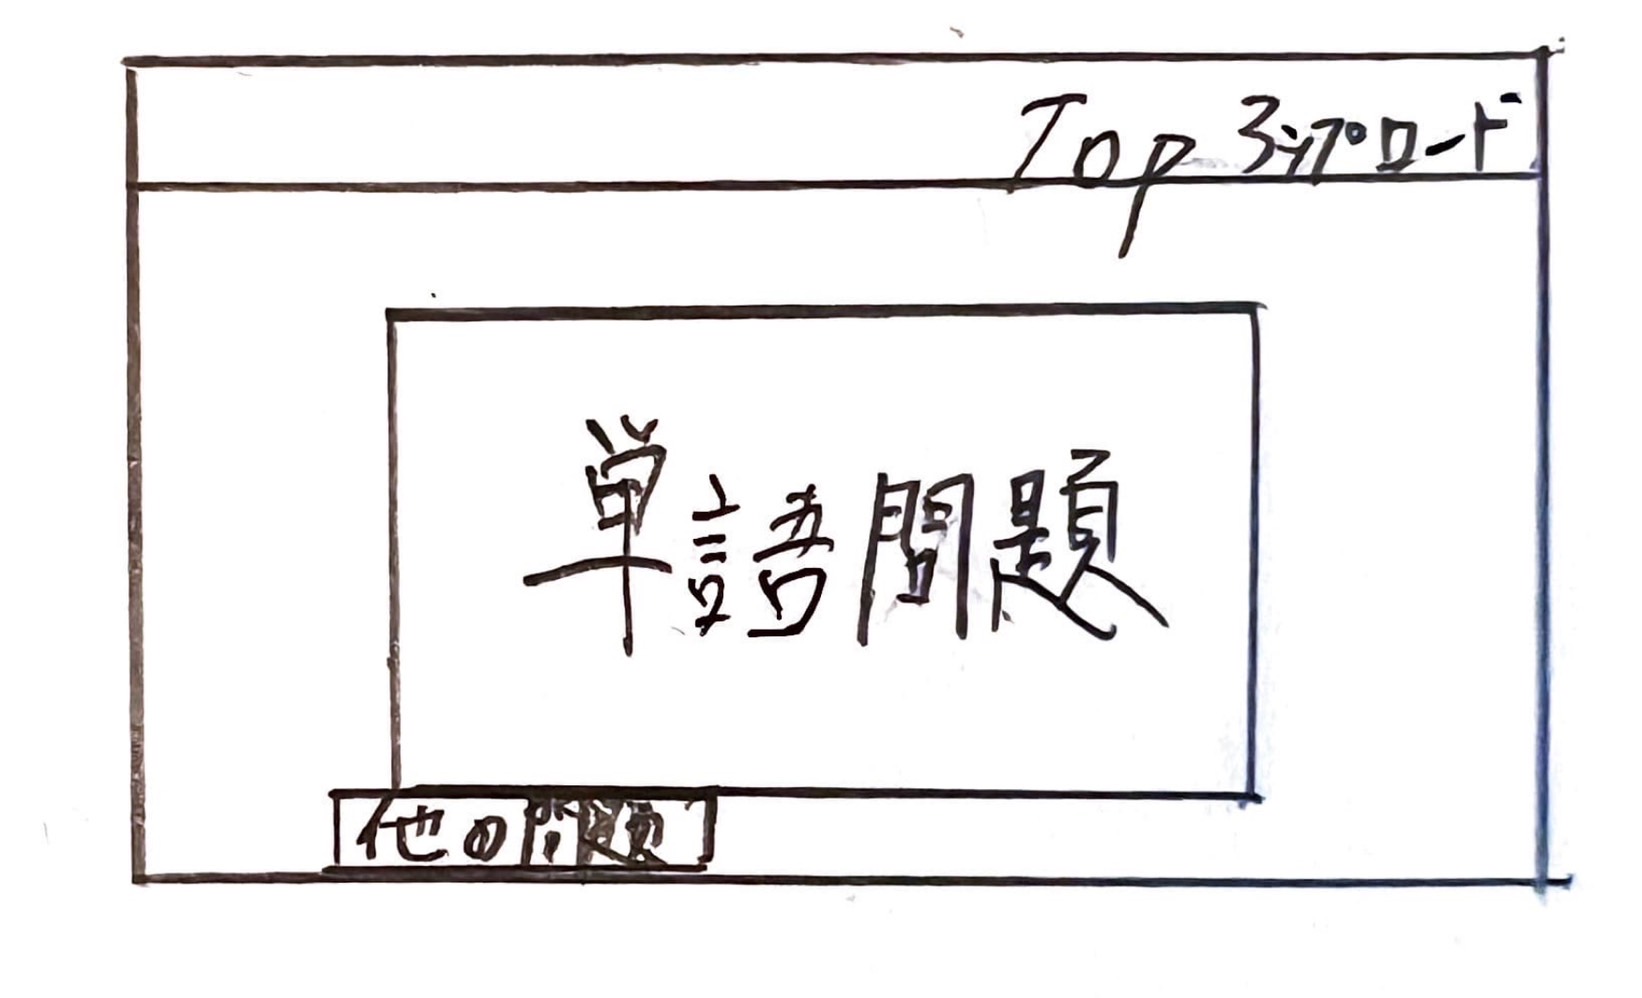 Top アップロード
単語問題
他の問題